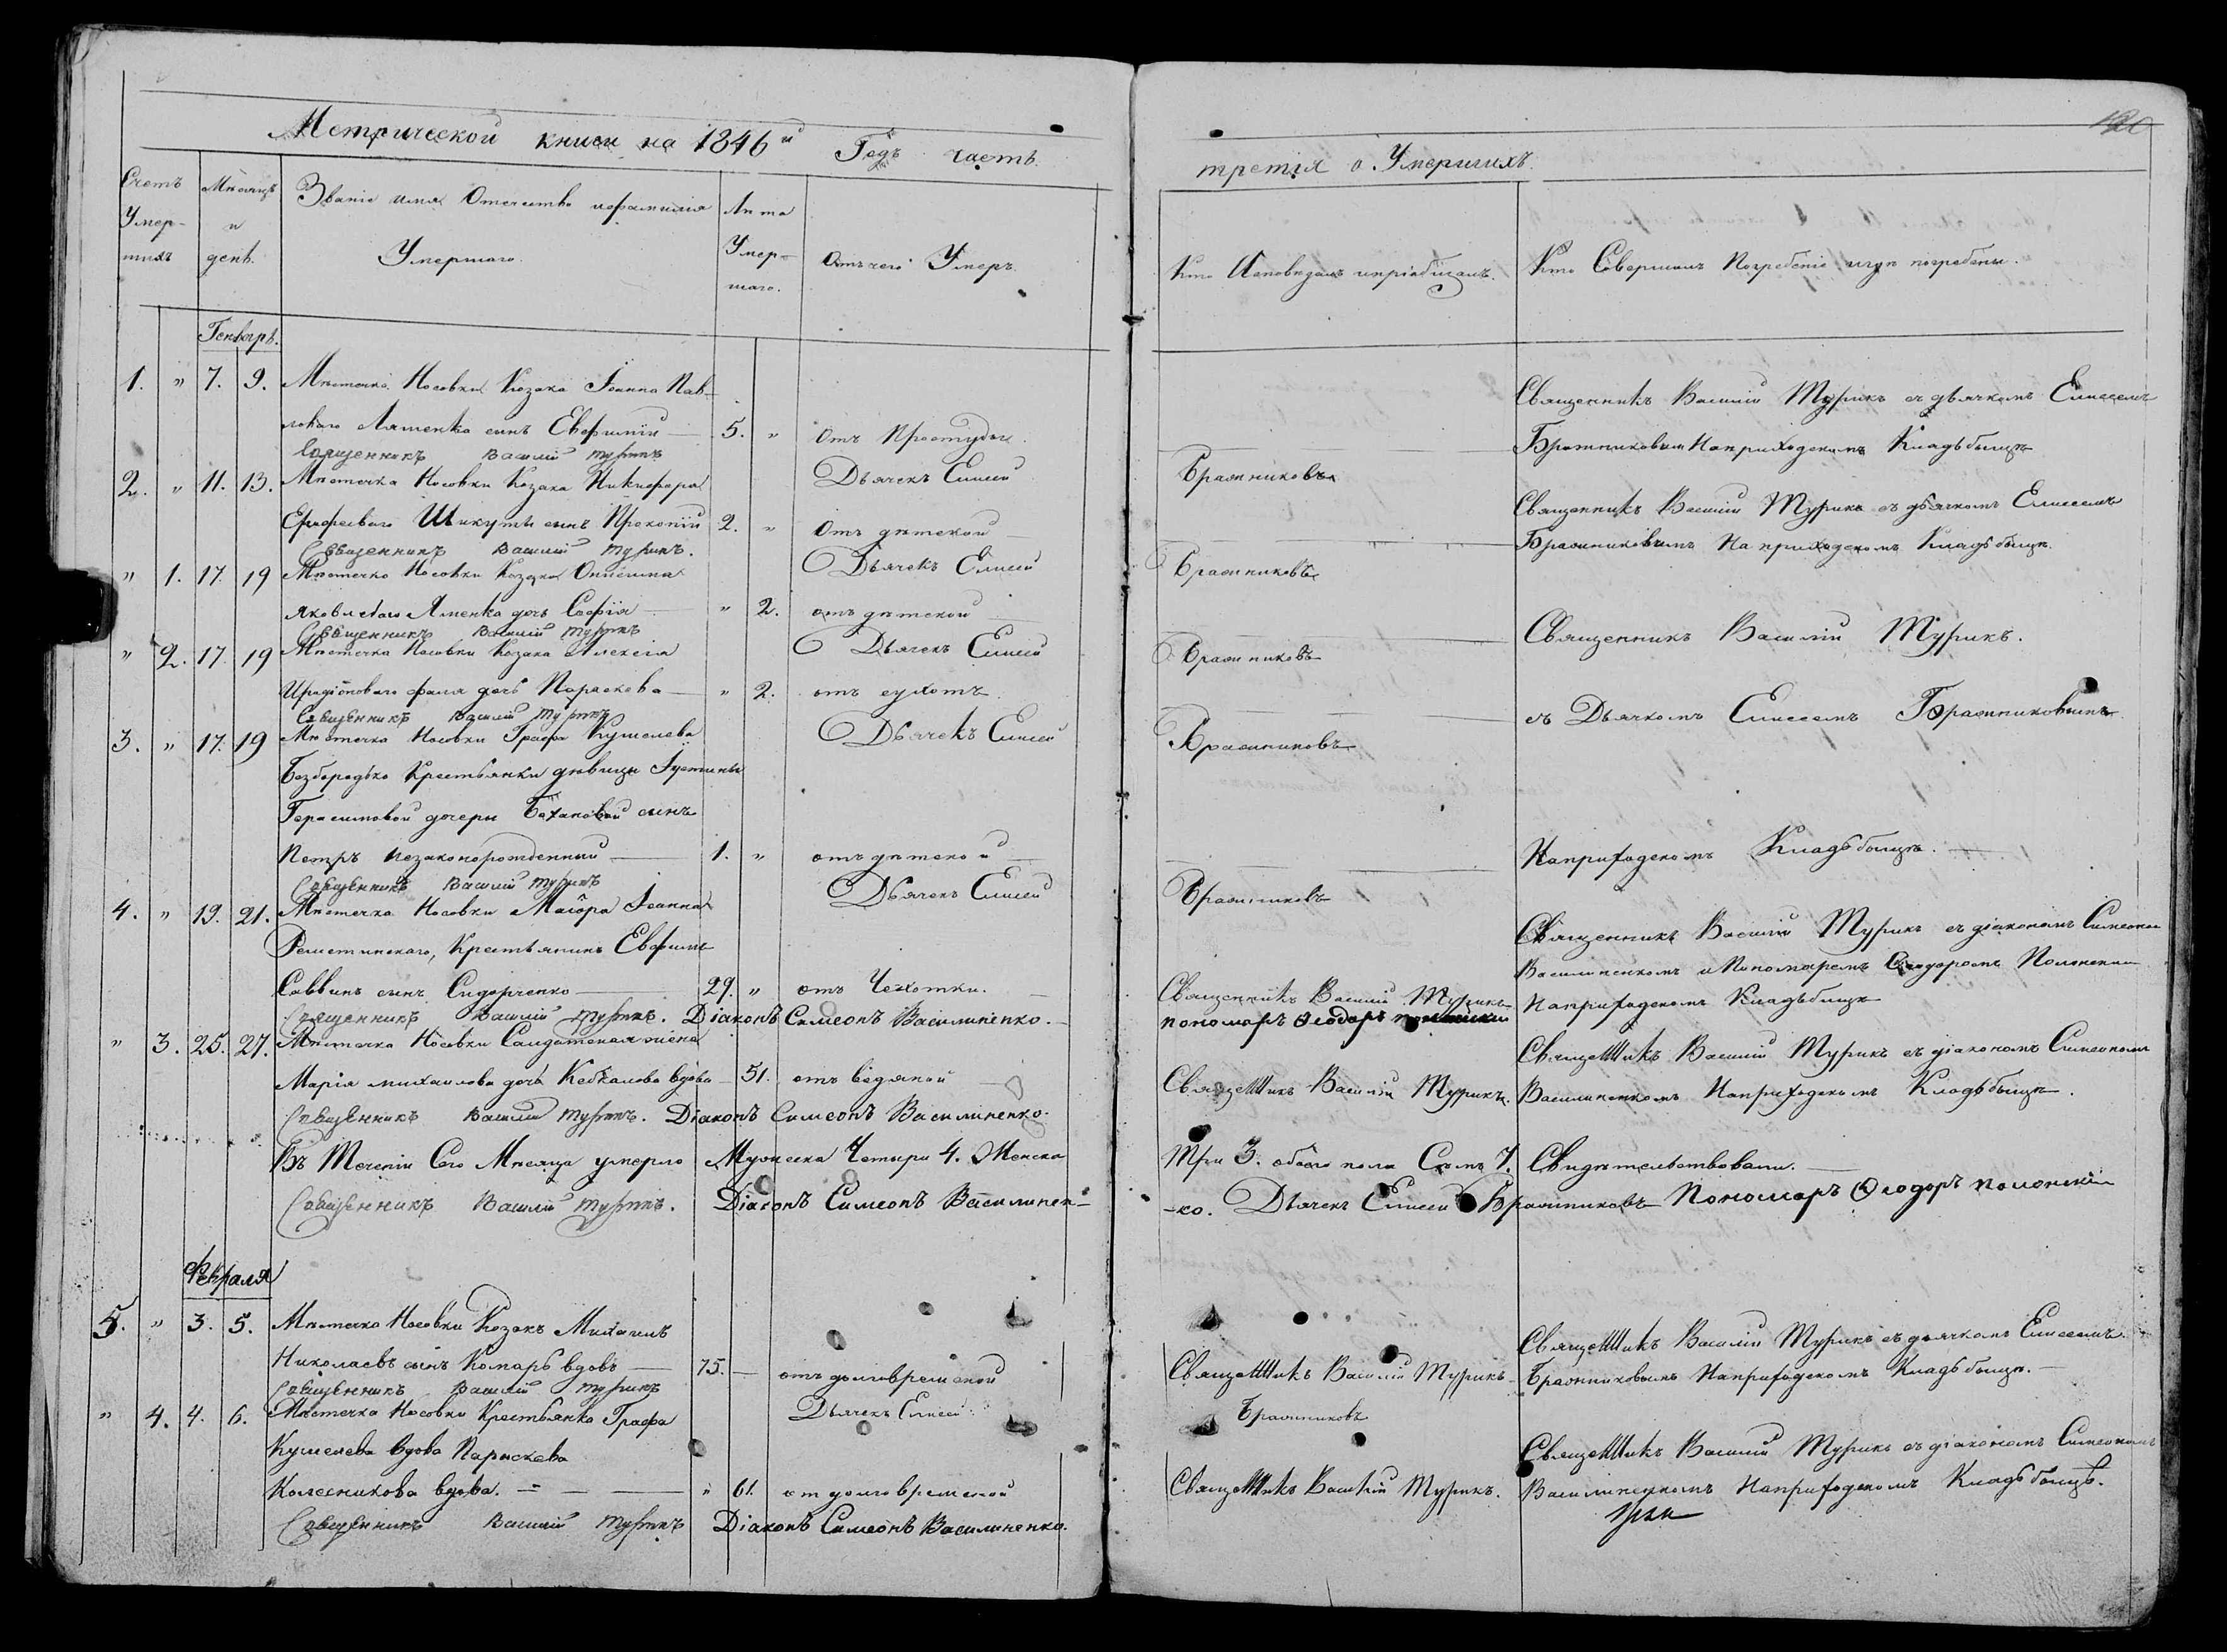 Метрической книги на 1846й Годъ часть
Счетъ Умер-шихъ
Мѣсяцъ и день.
Званіе имя Отчество и фамилія Умершаго.
Лѣта Умер-шаго.
Отъ чего Умеръ.
Генварь.
1. " 7. 9. Мѣстечка Носовки Козака Іоанна Пав-
ловаго Ляшенка сынъ Евфимій 5. " Отъ Простуды.
Священникъ Василій Турикъ Дьячекъ Елисей
2. " 11. 13. Мѣстечка Носовки Козака Никифора
Ерофееваго Шикуты сынъ Прокопій 2. " Отъ дѣтской
Священникъ Василій Турикъ. Дьячекъ Елисей
" 1. 17. 19 Мѣстечка Носовки Козака Онисима
Яковлеваго Яменка дочь Софія " 2. отъ дѣтской
Священникъ Василій Турикъ Дьячекъ Елисей
" 2. 17. 19 Мѣстечка Носовки Козака Алексія
дочь Параскева " 2. отъ сухотъ.
Священникъ Василій Турикъ Дьячекъ Елисей
3. " 17. 19 Мѣстечка Носовки Графа Кушелева
Безбородько Крестьянки дѣвицы Іустины
Герасимовой дочери сынъ
Петръ незаконорожденный 1. " отъ дѣтской
Священникъ Василій Турикъ Дьячекъ Елисей
4. " 19. 21. Мѣстечка Носовки Маіора Іоанна
Решетинскаго, Крестьянинъ Евфимъ
Саввинъ сынъ Сидорченко 29. " отъ Чехотки.
Священникъ Василій Турикъ. Діаконъ Симеонъ Василиненко.
" 3. 25. 27. Мѣстечка Носовки Солдатская жена
Марія михаилова дочь вдова 51. отъ водяной
Священникъ Василій Турикъ. Діаконъ Симеонъ Василиненко.
Въ Теченіи Сего Мѣсяца умерло Мужеска Четыри 4. Женска
Священникъ Василій Турикъ. Діаконъ Симеонъ Василинен-
Февраля
5. " 3. 5. Мѣстечка Носовки Козакъ Михаилъ
Николаевъ сынъ Комарь вдовъ 75. отъ долговременной
Священникъ Василій Турикъ Дьячекъ Елисей
" 4. 4. 6. Мѣстечка Носовки Крестьянка Графа
Кушелева вдова Параскева
Колесникова вдова. " 61. от долговременой
Священникъ Василій Турикъ Діаконъ Симеонъ Василиненко.
третія о Умершихъ.
Кто Исповедалъ и пріобщалъ.
Кто Совершалъ Погребеніе и гдѣ погребены.
Священникъ Василій Турикъ съ дьячкомъ Елисеемъ
Бражниковым На приходскомъ Кладьбищѣ
Бражниковъ
Священникъ Василій Турикъ съ дьячкомъ Елисеемъ
Бражниковымъ На приходскомъ Кладьбищѣ.
Бражниковъ
Священникъ Василій Турикъ.
Бражниковъ
съ Дьячкомъ Елисеемъ Бражниковымъ
Бражниковъ
На приходскомъ Кладьбищѣ.
Бражниковъ
Священникъ Василій Турикъ съ діакономъ Симеоном
Василиненкомъ и Пономаремъ Ѳеодоромъ Полонским
Священникъ Василій Турикъ На приходскомъ Кладьбищѣ
пономаръ Ѳеодоръ
Священникъ Василій Турикъ съ діакономъ Симеономъ
Священникъ Василій Турикъ. Василиненкомъ На приходскомъ Кладьбищѣ.
Три 3. обоего пола Семь 7. Свидѣтельствовали.
-ко. Дьячекъ Елисей Бражниковъ Пономаръ Ѳеодоръ Полонскій
Священникъ Василій Турикъ съ дьячкомъ Елисеемъ
Священникъ Василій Турикъ Бражниковымъ На приходскомъ Кладьбищѣ.
Бражниковъ
Священникъ Василій Турикъ съ діакономъ Симеономъ
Священникъ Василій Турикъ. Василиненкомъ На приходскомъ Кладьбищѣ.